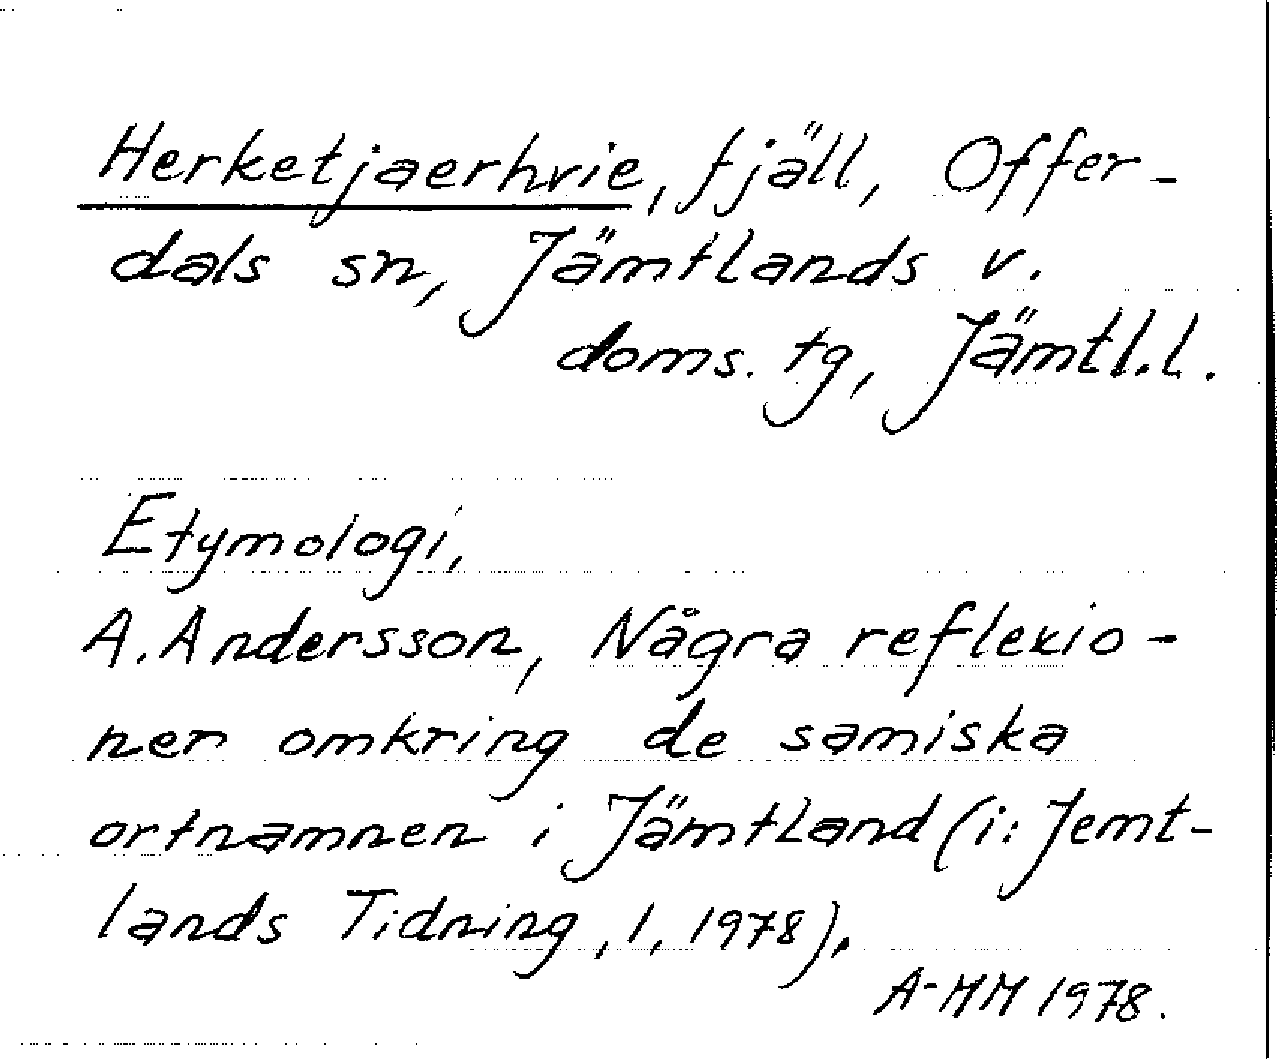 Herketjaerhvie, fjäll, Offer-
dals sn, Jämtlands v.
doms. tg, Jämtl.l.
Etymologi,
A. Andersson, Några reflexio-
ner omkring de samiska
ortnamnen i Jämtland (i: Jemt-
lands Tidning, 1, 1978).
A-MM 1978.